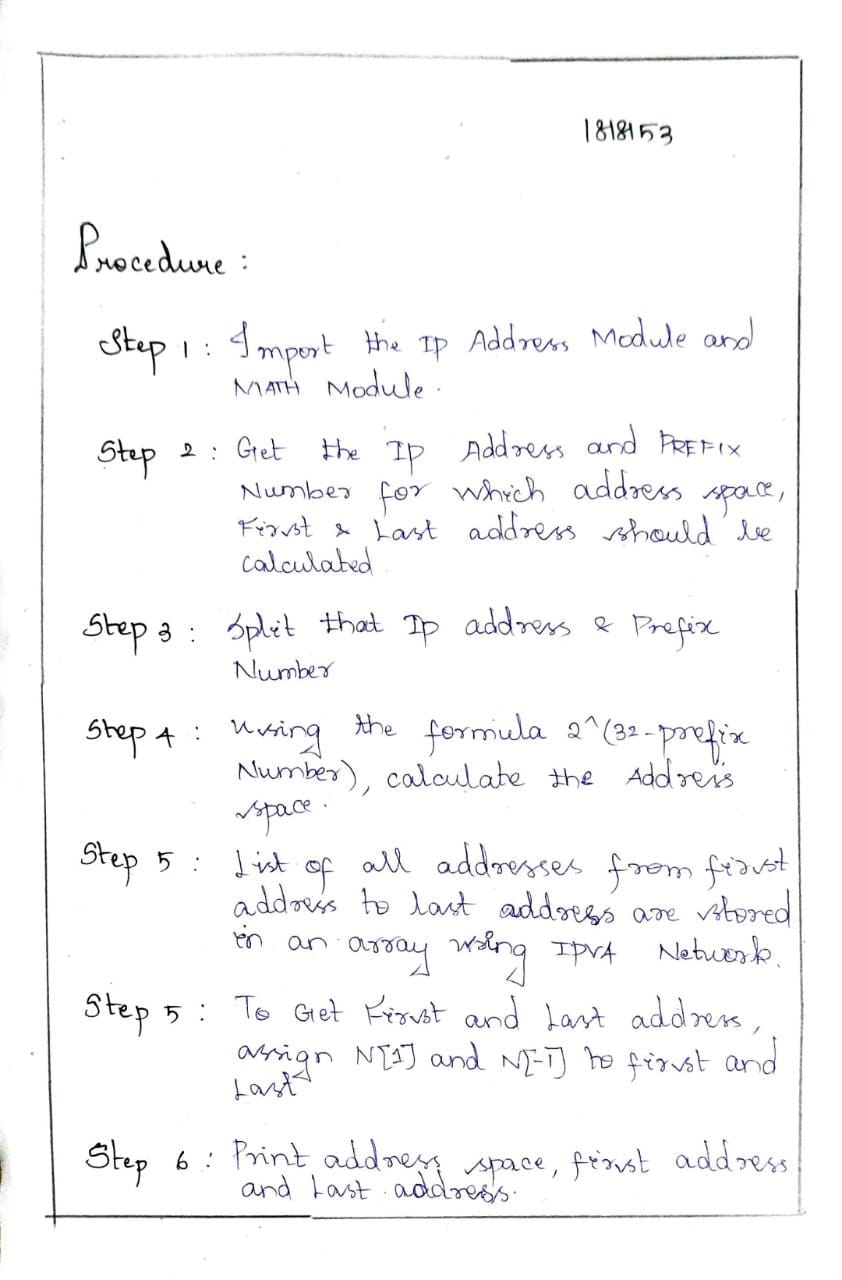 1818153
Procedure :
Step 1 : Import the Ip Address Module and
MATH Module .
Step 2 : Get the Ip Address and PREFIX
Number for which address space,
First & Last address should be
calculated
Step 3 : Split that Ip address & Prefix
Number
Step 4 : Using the formula 2^(32-prefix
Number), calculate the Address
space .
Step 5 : List of all addresses from first
address to last address are stored
in an array using IPV4 Network.
Step 5 : To Get First and Last address,
assign N[1] and N[-1] to first and
Last
Step 6 : Print address space, first address
and Last address.